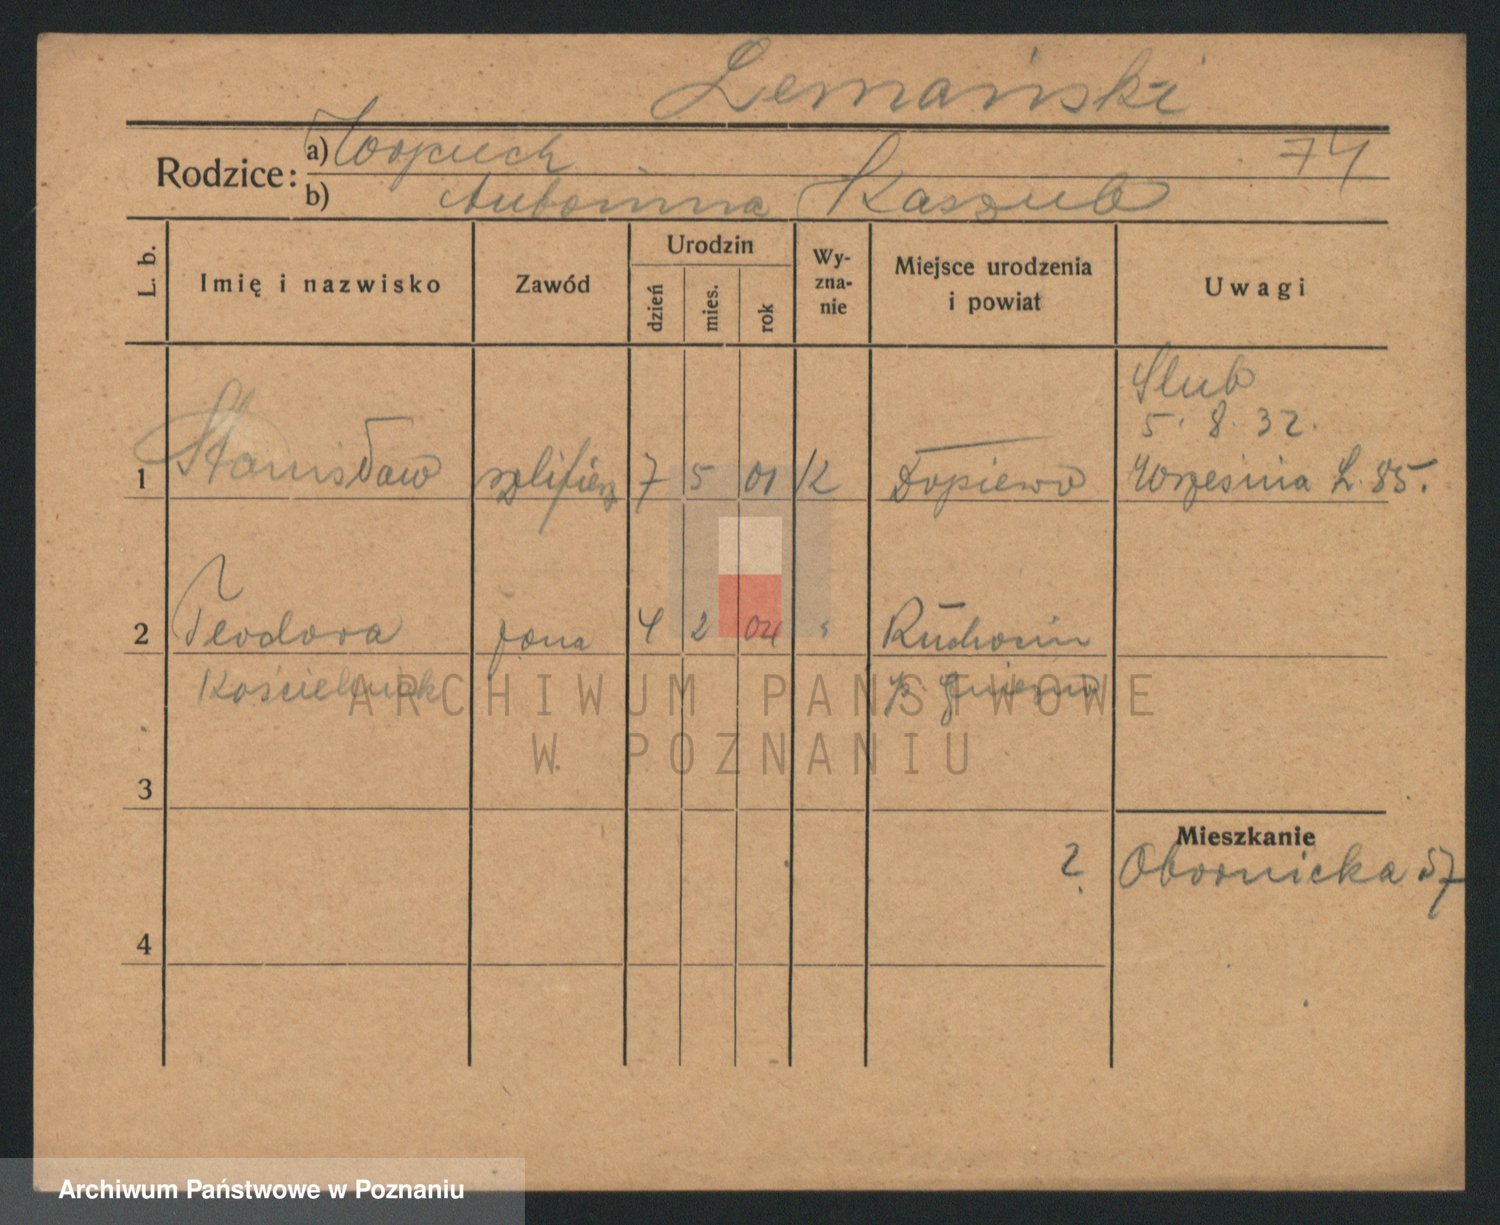 Lemański
Rodzice:
a) Wojciech 74
b) Antonina Kaszub
L. b.
Imię i nazwisko
Zawód
Urodzin
dzień
mies.
rok
Wy-
zna-
nie
Miejsce urodzenia
i powiat
Uwagi
Slub
5. 8. 32.
1 Stanisław szlifierz 7 5 01 K Dopiewo Września L. 85.
2 Teodora żona 4 2 04 " Ruchocin
Kościelniak p. Gniezno
ARCHIWUM PAŃSTWOWE
W POZNANIU
3
Mieszkanie
? Obornicka 57
4
Archiwum Państwowe w Poznaniu